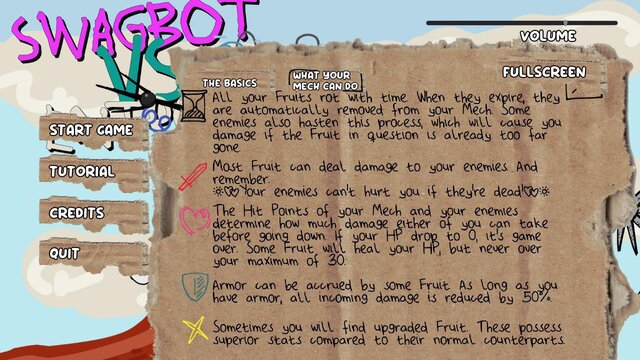 SWAGBOT
VS
VOLUME
FULLSCREEN
THE BASICS
WHAT YOUR
MECH CAN DO
START GAME
TUTORIAL
CREDITS
QUIT
All your Fruits rot with time. When they expire, they
are automatically removed from your Mech. Some
enemies also hasten this process, which will cause you
damage if the Fruit in question is already too far
gone.
Most Fruit can deal damage to your enemies. And
remember:
Your enemies can't hurt you if they're dead!
The Hit Points of your Mech and your enemies
determine how much damage either of you can take
before going down. If your HP drop to 0, it's game
over. Some Fruit will heal your HP, but never over
your maximum of 30.
Armor can be accrued by some Fruit. As long as you
have armor, all incoming damage is reduced by 50%.
Sometimes you will find upgraded Fruit. These possess
superior stats compared to their normal counterparts.